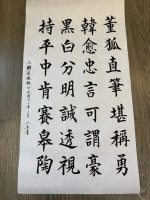 董狐直筆堪稱勇
韓愈忠言可謂豪
黑白分明誠透視
持平中肯賽皋陶